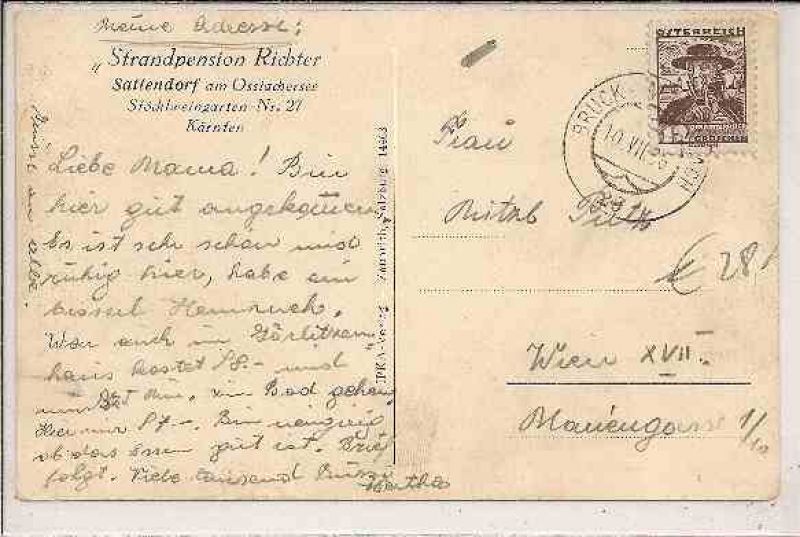 Meine Adresse:
"Strandpension Richter
Sattendorf am Ossiachersee
Stöcklweingarten Nr. 27
Kärnten
Liebe Mama! Bin
hier gut angekommen
Es ist sehr schön und
ruhig hier, habe ein
bisserl Heimweh.
War auch im Görlitzen-
haus kostet S8.- und
Bad gehen
Hier nur S7.- Bin neugierig
ob das Essen gut ist. Brief
folgt. Viele tausend Bussi
Hertha
Grüsse an alle.
Salzburg 14963
ÖSTERREICH
GROSCHEN
BRUCK
10.VII.35
Frau
Wien XVII.
Mariengasse 1/10
€ 28